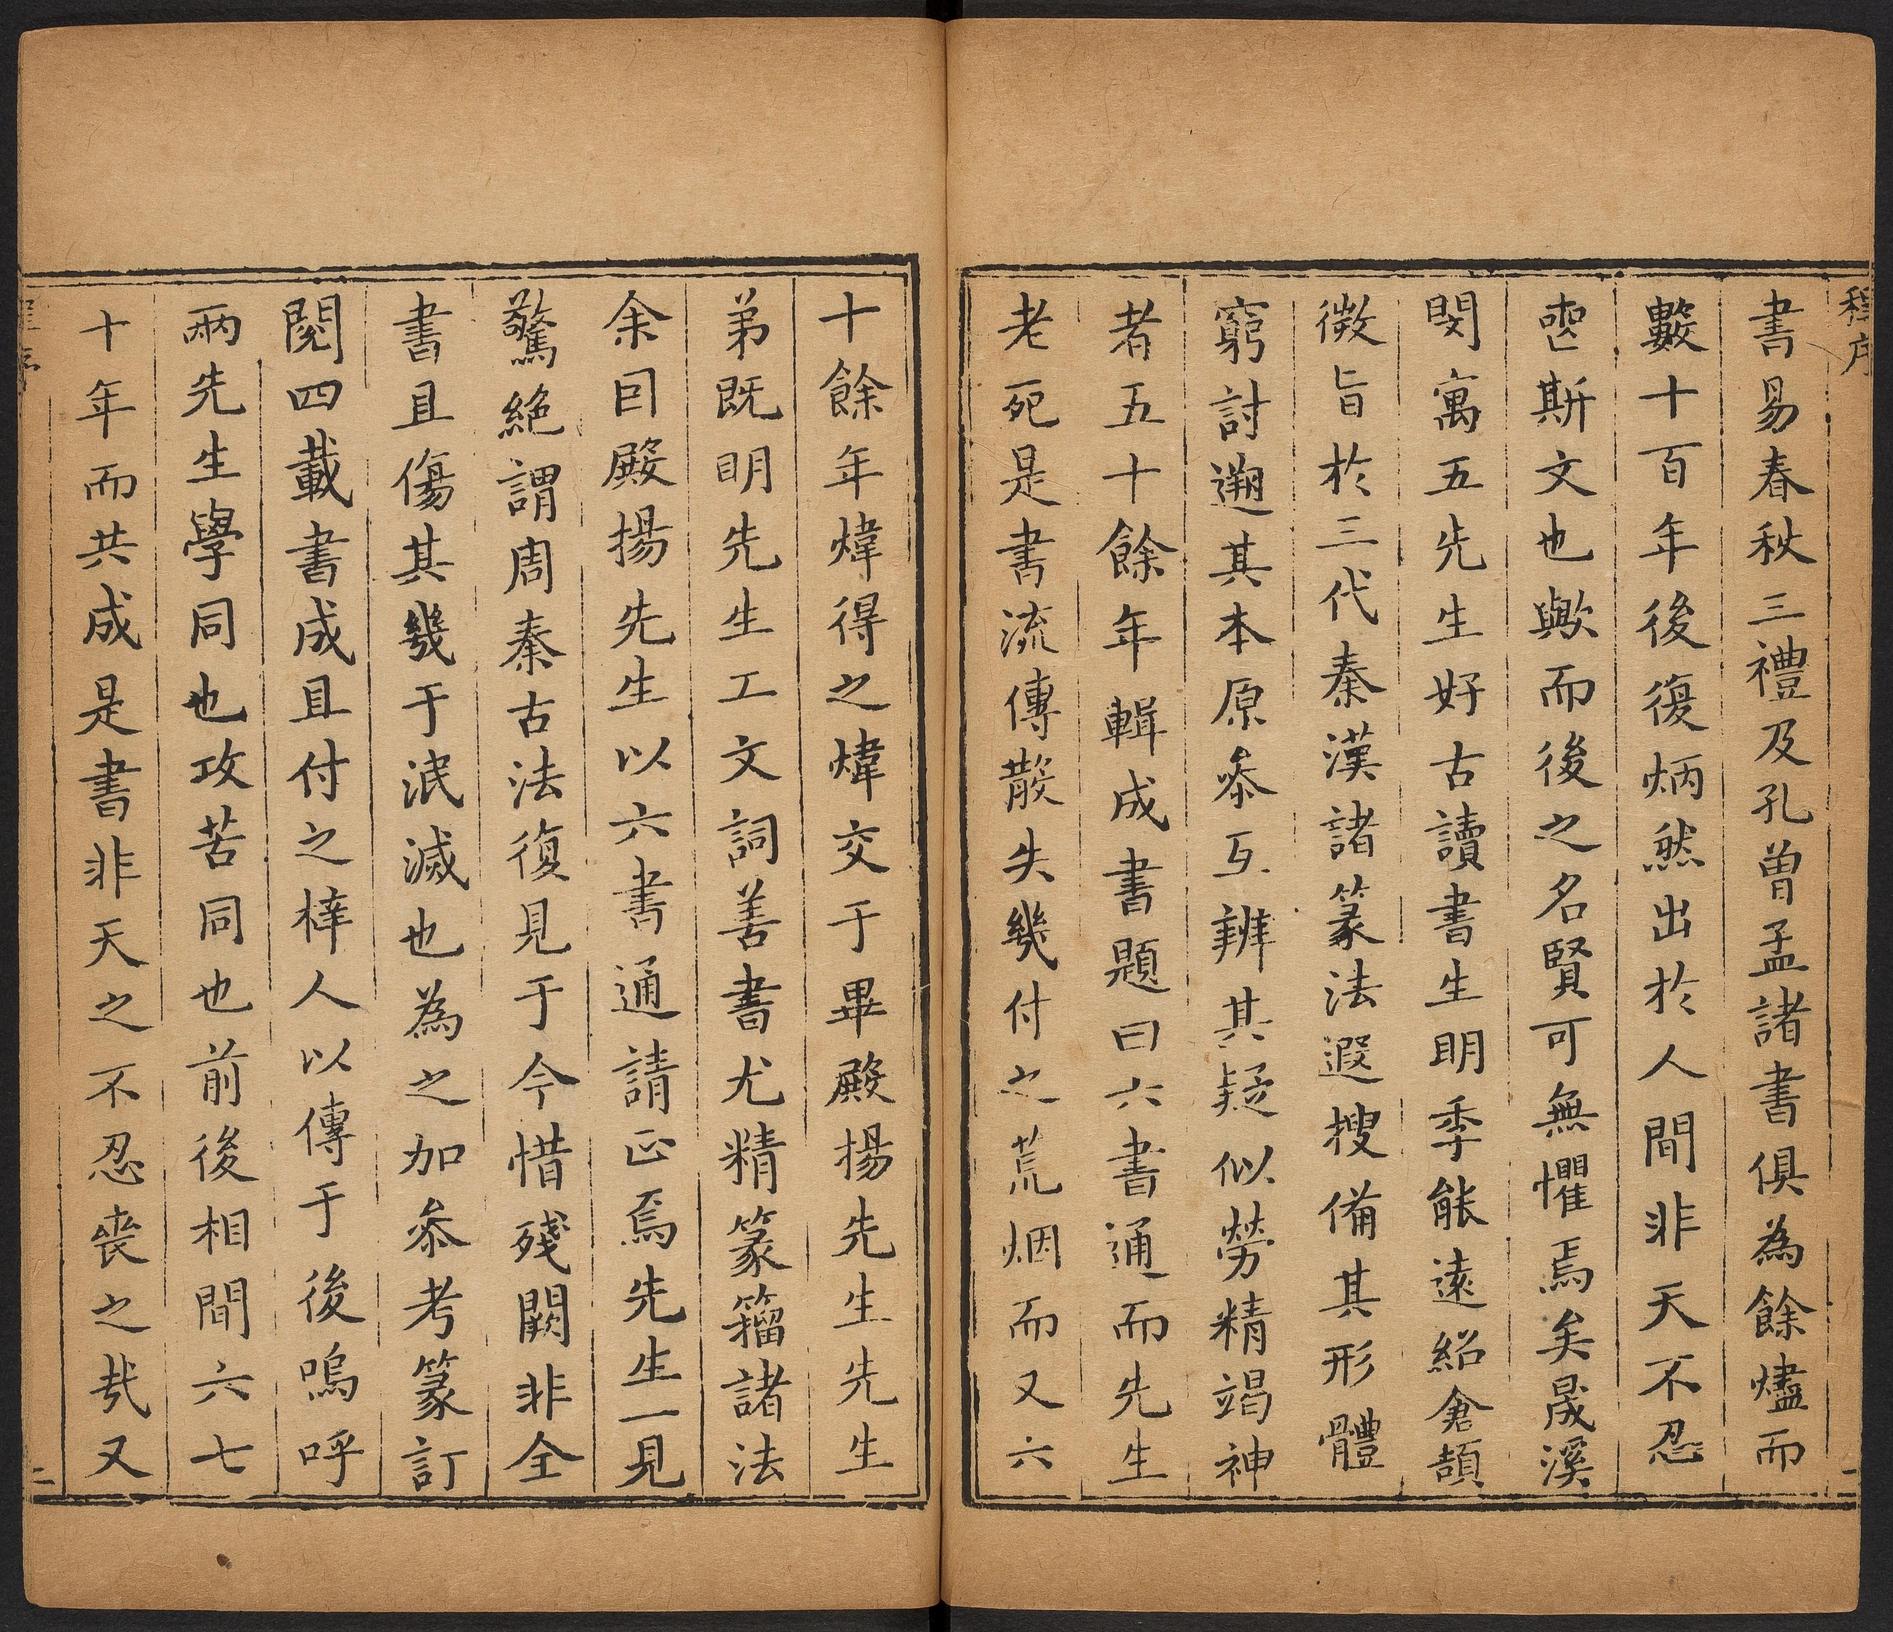 程序
書易春秋三禮及孔曾孟諸書俱為餘燼而
數十百年後復炳然出於人間非天不忍
喪斯文也歟而後之名賢可無懼焉矣晟溪
閔寓五先生好古讀書生明季能遠紹倉頡
微旨於三代秦漢諸篆法遐搜備其形體
窮討遡其本原叅互辨其疑似勞精竭神
者五十餘年輯成書題曰六書通而先生
老死是書流傳散失幾付之荒烟而又六
二
十餘年煒得之煒交于畢殿揚先生先生
弟既明先生工文詞善書尤精篆籀諸法
余因殿揚先生以六書通請正焉先生一見
驚絕謂周秦古法復見于今惜殘闕非全
書且傷其幾于泯滅也為之加叅考篆訂
閱四載書成且付之梓人以傳于後嗚呼
兩先生學同也攻苦同也前後相間六七
十年而共成是書非天之不忍喪之哉又
程序
二